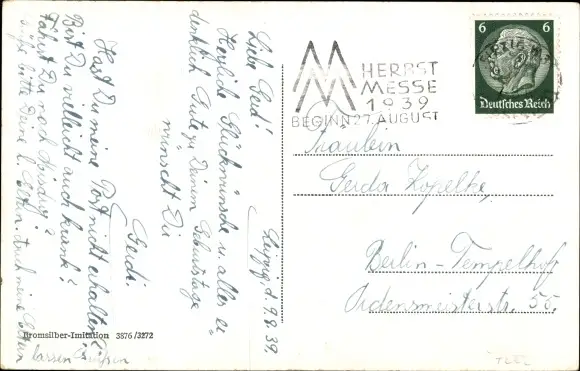 Leipzig, d. 9.8.39.
Liebe Gerdi!
Herzliche Glückwünsche u. alles er
denklich Gute zu Deinem Geburtstage
wünscht Dir
Gerdi.
Hast Du meine Post nicht erhalten?
Bist Du vielleicht auch krank?
Fährst Du nach
bitte Deine l. Eltern. Auch meine Eltern
lassen grüßen
Bromsilber-Imitation 3876/3272
HERBST
MESSE
1939
BEGINN 27. AUGUST
6 6
Deutsches Reich
Fräulein
Gerda Kopelke,
Berlin-Tempelhof
Ordensmeisterstr. 55.